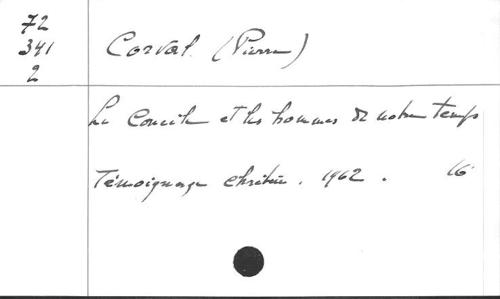 72
341
2
Corval (Pierre)
Le Concile et les hommes de notre temps
Témoignage chrétien. 1962. 16